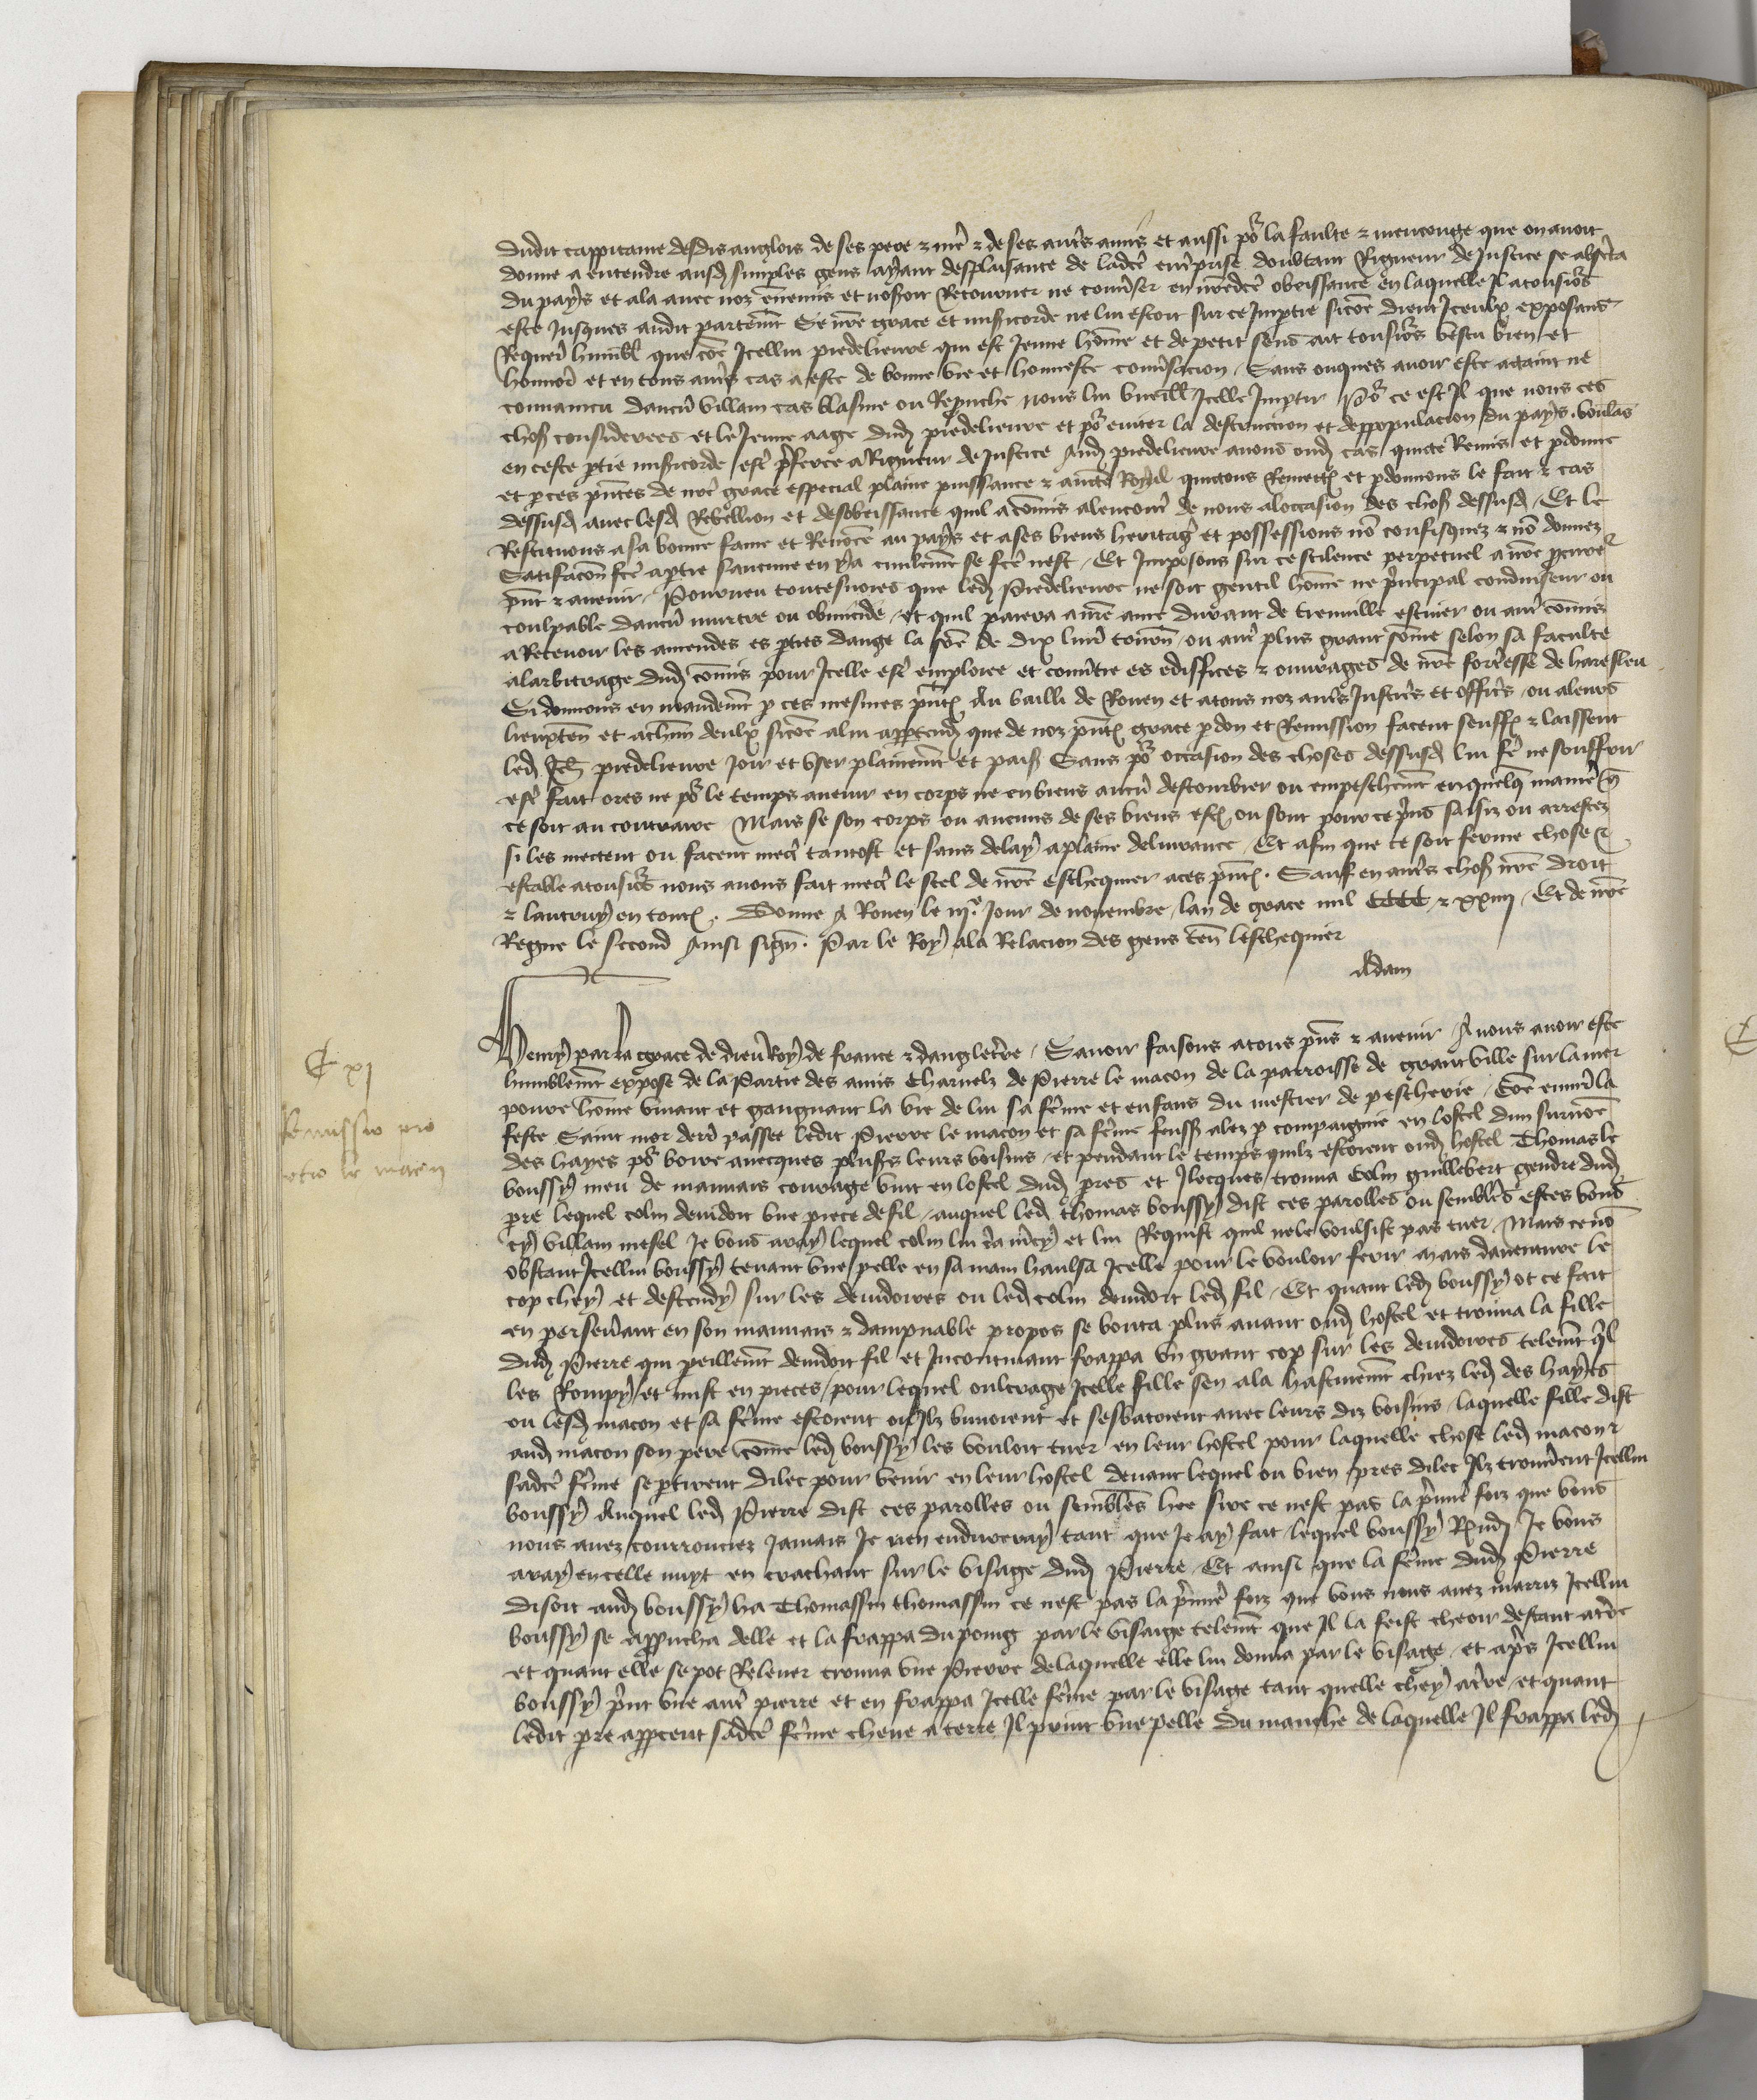 dudit cappitaine desdis anglois de ses pere & mere & de ses autres amis et aussi pour la faulte & menconge que on avoit
donne a entendre ausd simples gens ayant desplaisance de ladce emprise doubtant Rigueur de Justice se absenta
du pays et ala avec noz ennemis et nosoit Retourner ne converser en nredce obeissance en laquelle Il a tousiours
este Jusques audit partemt Se nre grace et misicorde ne lui estoit sur ce Imptie sicoe dient Iceulx exposans
Requer humbl que coe Icellui piedelieure qui est Jeune home et de petit sens ait tousiours vescu bien et
honnor et en tous autres cas a este de bonne vie et honneste conversacion Sans onques avoir este attaint ne
convaincu daucun villain cas blasme ou Reprouche nous lui vueill Icelle Imptir Pour ce est Il que nous ces
choses considerees et le Jeune aage dud piedelieure et pour eviter la destruccion et deppopulacion du pays voulas
en ceste ptie misicorde estre preferee a Rigueur de Justice Aud piedelieure avons oud cas quicte Remis et pdonne
et p ces pntes de nre grace especial plaine puissance & auctte Royal quictons Remectons et pdonnons le fait & cas
dessusd avec lesd Rebellion et desobeissance quil a comis alencontre de nous a loccasion des choses dessusd Et le
Restituons a sa bonne fame et Renomee au pays et a ses biens heritages et possessions no confisquez & no donnez
Satisfacon fce a ptie saucune en y a civilemt se fce nest Et Imposons sur ce scilence perpetuel a nre pcureur
pnt & avenir Pourveu toutesvoies que led Piedelieure ne soit gentil home ne principal conduiseur ou
coulpable daucun murtre ou omicide et quil paiera a nre ame Durant de trenville escuier ou autre comis
a Recevoir les amendes es pties dauge la soe de dix livres tourn ou autre plus grant some selon sa faculte
alarbitrage dud comis pour Icelle estre emploiee et convertie es ediffices & ouvrages de nre forteresse de harefleu
Si donnons en mandemt p ces mesmes pntes Au bailli de Rouen et a tous noz autres Justiciers et officiers ou a leurs
lieuxten et a chun deulx sicoe a lui appartendra que de noz pntes grace pdon et Remission facent seuffrent & laissent
led Jeh piedelieure Joir et vser plainemt et paisiblement Sans pour occasion des choses dessusd lui fere ne souffrir
estre fait ores ne pour le temps avenir en corps ne en biens aucun destourbier ou empeschemt en quelq maniere q
ce soit au contraire Mais se son corps ou aucuns de ses biens est ou sont pour ce prins saisiz ou arrestez
si les mectent ou facent mectre tantost et sans delay a plaine delivrance Et afin que ce soit ferme chose &
estable a tousiours nous avons fait mectre le seel de nre eschequier a ces pntes. Sauf en autres choses nre droit
& lautruy en toutes. Donne A Rouen le iije Jour de novembre lan de grace mil CCCC & xxiiij Et de nre
Regne le second Ainsi signe. Par le Roy a la Relacion des gens ten leschequier
Adam
Henry par la grace de dieu Roy de france & dangleterre Savoir faisons a tous pns & avenir A nous avoir este
humblemt expose de la Partie des amis Charnelz de Pierre le macon de la parroisse de grantville sur la mer
povre home vivant et gaignant la vie de lui sa feme et enfans du mestier de pescherie Coe environ la
feste Saint mor derr passee ledit Pierre le macon et sa feme feussent alez p compaignie en lostel dun surnoe
des hayes pour boire avecques plusrs leurs voisins et pendant le temps quilz estoient oud hostel Thomas le
boussy meu de mauvais courage vint en lostel dud pres et Ilecques trouva Colin guillebert gendre dud
pre lequel colin devidoit vne piece de fil auquel led Thomas boussy dist ces parolles ou semblables estes vous
cy villain mesel Je vous aray lequel colin lui cria mercy et lui Requist quil ne le voulsist pas tuer Mais ce no
obstant Icellui boussy tenant vne pelle en sa main haulsa Icelle pour le vouloir ferir mais daventure le
cop chey et descendy sur les devidoires ou led colin devidoit led fil Et quant led boussy ot ce fait
en perseverant en son mauvais & dampnable propos se bouta plus avant oud hostel et trouva la fille
dud Pierre qui peillemt devidoit fil et Incontinant frappa vn grant cop sur les devidoires telemt ql
les Rompy et mist en pieces pour lequel oultrage Icelle fille sen ala hastivemt chiez led des hayes
ou lesd macon et sa feme estoient ou Ilz buvoient et sesbatoient avec leurs diz voisins laquelle fille dist
aud macon son pere come led boussy les vouloit tuer en leur hostel pour laquelle chose led macon &
sadce feme se ptirent dilec pour venir en leur hostel devant lequel ou bien pres dilec Ilz trouverent Icellui
boussy Auquel led Pierre dist ces parolles ou semblables hee sire ce nest pas la prmiere foiz que vous
nous avez courrouciez Jamais Je nen endureray tant que Je ay fait lequel boussy Respondi Je vous
aray encelle nuyt en crachant sur le visage dud Pierre Et ainsi que la feme dud Pierre
disoit aud boussy ha Thomassin thomassin ce nest pas la premiere foiz que vous nous avez marriz Icellui
boussy se approucha delle et la frappa du poing par le visaige telemt que Il la feist cheoir destant a tre
et quant elle se pot Relever trouva vne Pierre de laquelle elle lui donna par le visage et aps Icellui
boussy print vne autre pierre et en frappa Icelle feme par le visage tant quelle chey a tre et quant
ledit pre appercent sadce feme cheue a terre Il print vne pelle du manche de laquelle Il frappa led
C xj
Remissio pro
petro le macon